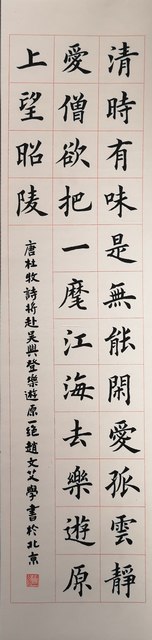 清時有味是無能閑愛孤雲靜
愛僧欲把一麾江海去樂遊原
上望昭陵
唐杜牧詩將赴吳興登樂遊原一絕趙文艾學書於北京